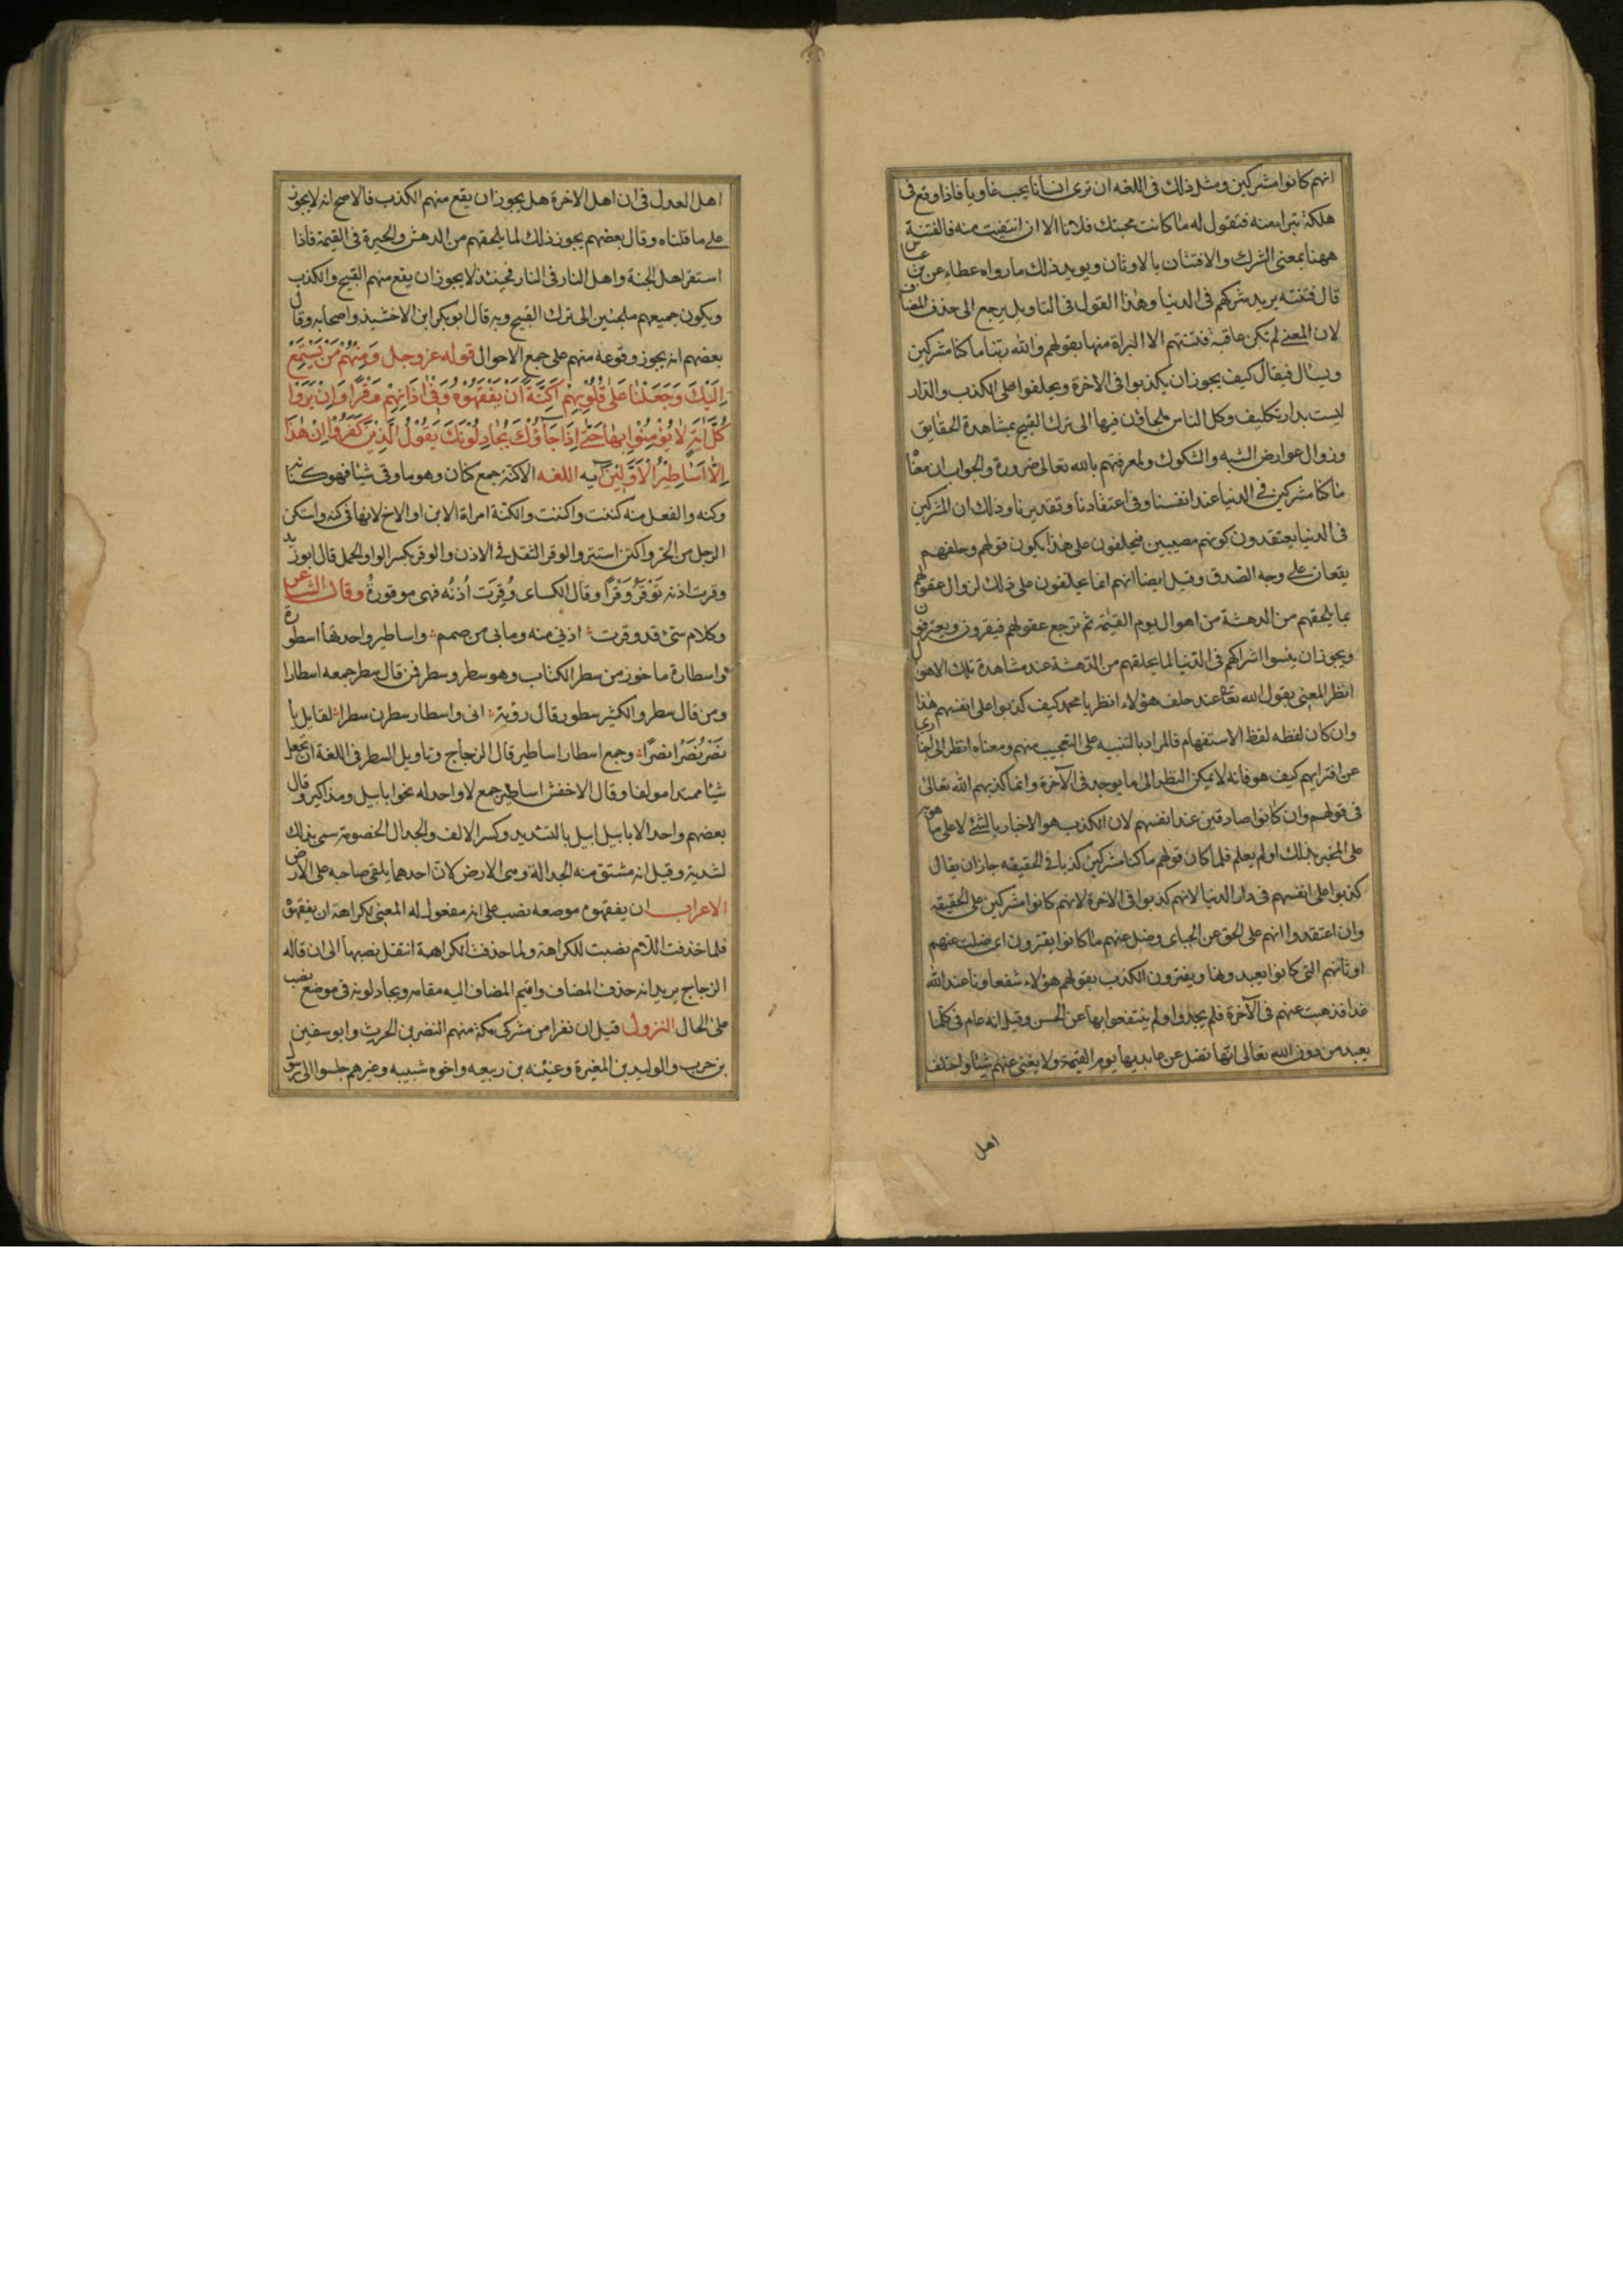 انهم كانوا مشركين ومثل ذلك فى اللغه ان ترى انسانا يحب غاويا فاذا وقع فى
هلكة تبرا منه فتقول له ما كانت محبتك فلانا الا ان انتفيت منه فالفتنة
ههنا بمعنى الشرك والافتنان بالاوثان ويويد ذلك ما رواه عطاء عن بن عباس
قال فتنته يريد شركهم فى الدنيا وهذا القول فى التاويل يرجع الى حذف المضاف
لان المعنى لم تكن عاقبة فتنتهم الا البراة منها بقولهم والله ربنا ما كنا مشركين
ويسال فيقال كيف يجوز ان يكذبوا فى الاخرة ويحلفوا على الكذب والدار
ليست بدار تكليف وكل الناس ملجاؤن فيها الى ترك القبيح بمشاهدة الحقايق
وزوال عوارض الشبه والشكوك ولمعرفتهم بالله تعالى ضرورة والجواب ان معناه
ما كنا مشركين فى الدنيا عند انفسنا وفى اعتقادنا وتقديرنا وذلك ان المشركين
فى الدنيا يعتقدون كونهم مصيبين فيحلفون على هذا يكون قولهم وحلفهم
يقعان على وجه الصدق وقيل ايضا انهم انما يحلفون على ذلك لزوال عقولهم
بما يلحقهم من الدهشة من اهوال يوم القيمة ثم ترجع عقولهم فيقرون ويعترفون
ويجوز ان ينسوا اشراكهم فى الدنيا لما يلحقهم من الدهشة عند مشاهدة تلك الاهوال
انظر المعنى يقول الله تعا عند حلف هؤلاء انظر يا محمد كيف كذبوا على انفسهم هذا
وان كان لفظه لفظ الاستفهام فالمراد بالتنبيه على التعجيب منهم ومعناه انظر الى اخبارى
عن افترايهم كيف هو فانه لا يمكن النظر الى ما يوجد فى الآخرة وانما كذبهم الله تعالى
فى قولهم وان كانوا صادقين عند انفسهم لان الكذب هو الاخبار بالشئ لا على ما هو به
على المخبر بذلك او لم يعلم فلما كان قولهم ما كنا مشركين كذبا فى الحقيقه جاز ان يقال
كذبوا على انفسهم فى دار الدنيا لانهم كذبوا فى الاخرة لانهم كانوا مشركين على الحقيقه
وان اعتقدوا انهم على الحق عن الجباى وضل عنهم ما كانوا يفترون اى ضلت عنهم
اوثانهم التى كانوا يعبدونها ويفترون الكذب بقولهم هؤلاء شفعاونا عند الله
غدا فذهبت عنهم فى الآخرة فلم يجدوا ولم ينتفعوا بها عن الحسن وقيل انه عام فى كل ما
يعبد من دون الله تعالى انها تضل عن عابديها يوم القيمة ولا يغنى عنهم شيئا واختلف
اهل
اهل العدل فى ان اهل الاخرة هل يجوز ان يقع منهم الكذب فالاصح انه لا يجوز
على ما قلناه وقال بعضهم يجوز ذلك لما يلحقهم من الدهش والحيرة فى القيمة فاذا
استقر اهل الجنة واهل النار فى النار فحينئذ لا يجوز ان يقع منهم القبيح والكذب
ويكون جميعهم ملجئين الى ترك القبيح وبه قال ابو بكر ابن الاخشيذ واصحابه وقال
بعضهم انه يجوز وقوعه منهم على جمع الاحوال قوله عز وجل وَمِنْهُمْ مَنْ يَسْتَمِعُ
اِلَيْكَ وَجَعَلْنَا عَلَى قُلُوبِهِمْ اَكِنَّةً اَنْ يَفْقَهُوهُ وَفِى اذَانِهِمْ وَقْرًا وَاِنْ يَرَوْا
كُلَّ ايَةٍ لَا يُؤْمِنُوا بِهَا حَتَّى اِذَا جَاؤُكَ يُجَادِلُونَكَ يَقُولُ الَّذِينَ كَفَرُوا اِنْ هَذَا
اِلَّا اَسَاطِيرُ الْاَوَّلِينَ آيه اللغه الاكنة جمع كنان وهو ما وقى شيئا فهو كنانه
وكنه والفعل منه كننت واكننت والكنة امراة الابن او الاخ لانها فى كنه واستكن
الرجل من الحر واكتن استتر والوقر الثقل فى الاذن والوقر بكسر الواو الحمل قال ابو زيد
وقرت اذنه تَوْقَرُ وَقْرًا وقال الكساى وُقِرَت اُذنُه فهى موقورةٌ وقال الشاعر
وكلام سئ قد وقرت اذنى منه وما بى من صمم واساطير واحدتها اسطورة
واسطارة ماخوذ من سطر الكتاب وهو سطر وسطر فمن قال سطر جمعه اسطارا
ومن قال سطر والكثير سطور قال رؤبة انى واسطار سطرن سطرا لقايل يا
نَصْرُ نَصْرًا نصرًا وجمع اسطار اساطير قال الزجاج وتاويل السطر فى اللغة ان تجعل
شيئا ممتدا مولفا وقال الاخفش اساطير جمع لا واحد له نحو ابابيل ومذاكير وقال
بعضهم واحد الابابيل ابيل بالتشديد وكسر الالف والجدال الخصومة سمى بذلك
لشدته وقيل انه مشتق منه الجدالة وهى الارض كان احدهما يلقى صاحبه على الارض
الاعراب ان يفقهوه موضعه نصب على انه مفعول له المعنى لكراهة ان يفقهوه
فلما حذفت اللام نصبت للكراهة ولما حذفت الكراهة انتقل نصبها الى ان قاله
الزجاج يريد انه حذف المضاف واقيم المضاف اليه مقامه ويجادلونه فى موضع نصب
على الحال النزول قيل ان نفرا من مشركى مكة منهم النضر بن الحرث وابو سفين
بن حرب والوليد بن المغيرة وعتبه بن ربيعه واخوه شيبه وغيرهم جلسوا الى رسول